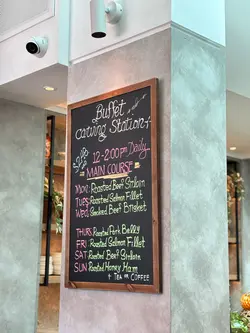 Buffet
carving Station
12-2:00pm Daily
MAIN COURSE
MON: Roasted Beef Striloin
TUES: Roasted Salmon Fillet
WED: Smoked Beef Brisket
THURS: Roasted Pork Belly
FRI: Roasted Salmon Fillet
SAT: Roasted Beef Striloin
SUN: Roasted Honey Ham
+ TEA OR COFFEE